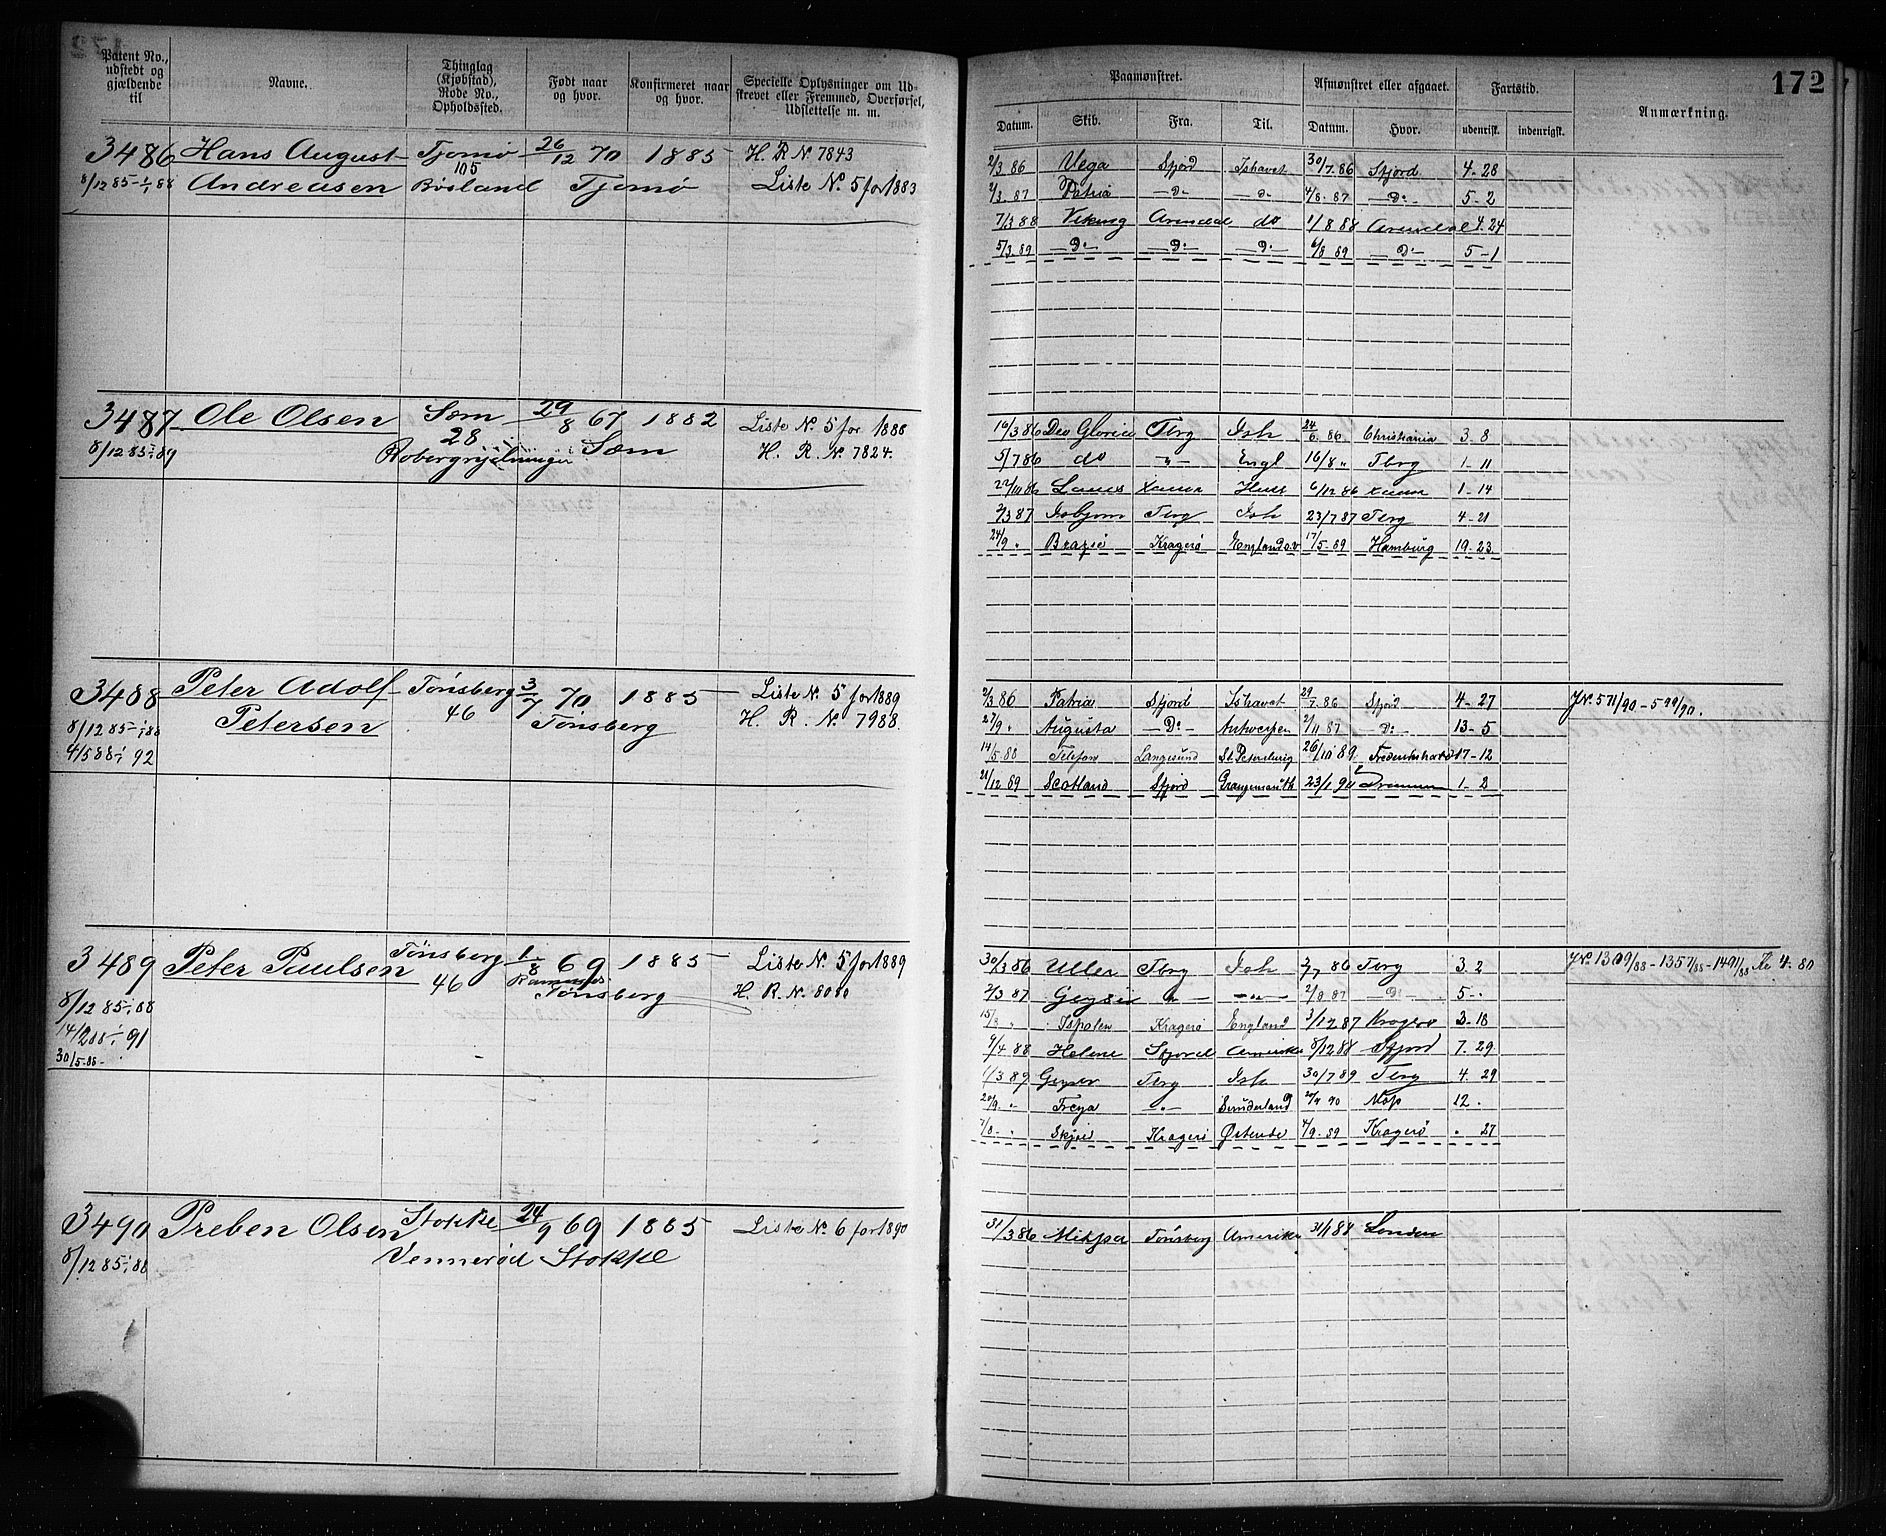 172
Patent No., udstedt og gjældende til
Navne.
Thinglag (Kjøbstad), Rode No., Opholdssted.
Født naar og hvor.
Konfirmeret naar og hvor.
Specielle Oplysninger om Udskrevet eller Fremmed, Overførsel, Udslettelse m. m.
Paamønstret.
Afmønstret eller afgaaet.
Fartstid.
Anmærkning.
Datum. Skib. Fra. Til. Datum. Hvor. udenrigsk. indenrigsk.
3486 Hans August Tjømø 26/12 70 1885 H. R. N. 7843
8/12 85-1/1 88 Andreasen 105 Bøsland Tjømø Liste No. 5 for 1883
2/3 86 Vega Sfjord Ishavet 30/7.86 Sfjord 4-28
2/3.87 Patria —D— —D— 4/8-87 —D:— 5-2
7/3 88 Viking Arendal do 1/8 88 Arendal 4.24
5/3.89 —D:— —D:— —D:— 6/8 89 —D:— 5-1
3487 Ole Olsen Sæm 29/8 67 1882 Liste No. 5 for 1888
8/12 85-1/1 89 28 Sæm H. R. No. 7824.
16/3 86 Deo Gloria Tbrg Ish 24/6.86 Christiania 3-8
5/7 86 do —"— Engl 16/8 " Tbrg 1-11
22/10 86 6/12 86 1-14
2/3 87 Isbjørn Tbrg Ish 23/7 87 Tbrg 4-21
24/9 " Kragerø England 17/5-89 Hamburg 19-23
3488 Peter Adolf Tønsberg 3/7 70 1885 Liste No. 5 for 1889
8/12 85-1/1 88 Petersen 46 Tønsberg H. R. No. 7988.
4/5 88-1/1 92
2/3 86 Patria Sfjord Ishavet 29/7.86 Sfjord 4-27 JNo. 571/90-599/90.
27/9 " Augusta —D:— Antwerpen 2/11 87 —D:— 13-5
14/5-88 Telefon Langesund St. Petersburg 26/10 89 17-12
21/12 89 Scotland Sfjord Grangemouth 23/1 90 Drammen 1-2
3489 Peter Paulsen Tønsberg 1/8 69 1885 Liste No. 5 for 1889
8/12 85-1/1 88 46 Tønsberg H. R. No. 8080
14/2 88-1/1 91
30/5-88-
30/3 86 Uller Tbrg Ish 2/7 86 Tbrg 3.2 JNo. 1309/88-1357/88-1491/88
2/3 87 Geysir —"— —"— 2/8 87 —D— 5-
15/8 " Ispolen Kragerø England 3/12 87 Kragerø 3-18
9/4 88 Helene Sfjord Amerika 8/12 88 Sfjord 7.29
1/3 89 Geyser Tbrg Ish 30/7 89 Tbrg 4.29
20/9 - Freya —"— Sunderland 12.
Kragerø Østende 4/9-89 Kragerø " 27
3490 Preben Olsen Stokke 24/9 69 1885 Liste No. 6 for 1890
8/12 85-1/1 88 Vennerød Stokke
31/3 86 Mizpa Tønsberg Amerika 31/1 88 London